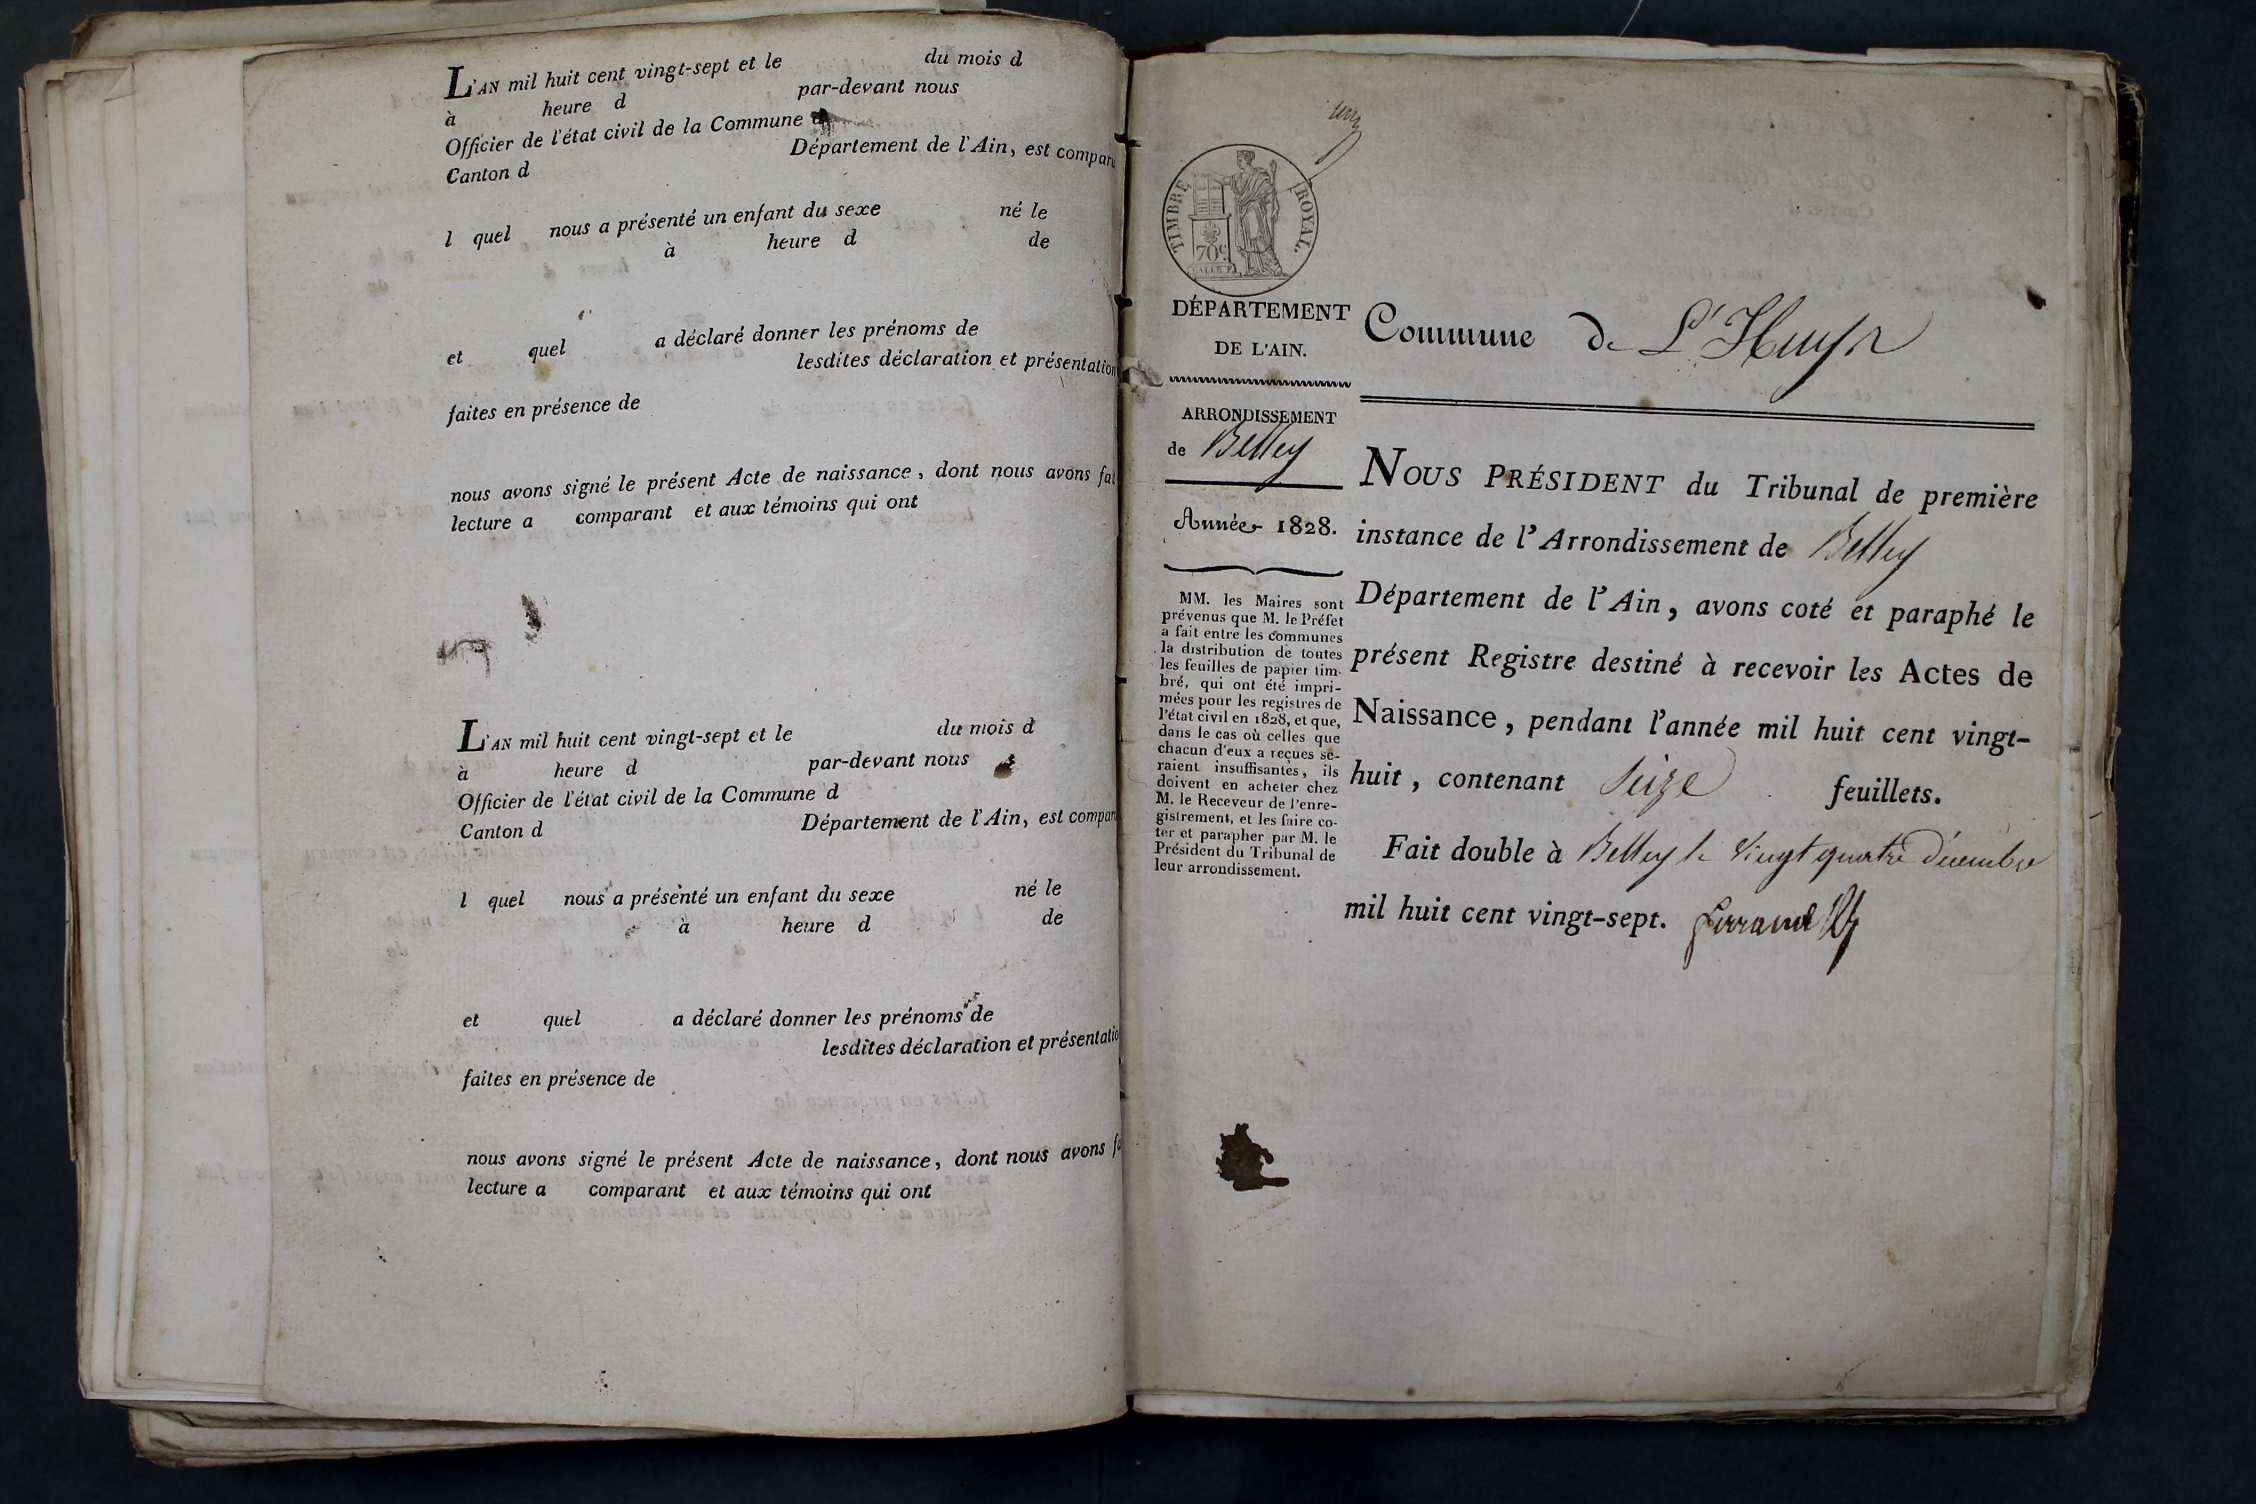 L'AN mil huit cent vingt-sept et le du mois d
à heure d par-devant nous
Officier de l'état civil de la Commune d
Canton d Département de l'Ain, est comparu
l quel nous a présenté un enfant du sexe né le
à heure d de
et quel a déclaré donner les prénoms de
lesdites déclaration et présentation
faites en présence de
nous avons signé le présent Acte de naissance, dont nous avons fai
lecture a comparant et aux témoins qui ont
L'AN mil huit cent vingt-sept et le du mois d
à heure d par-devant nous
Officier de l'état civil de la Commune d
Canton d Département de l'Ain, est compar
l quel nous a présenté un enfant du sexe né le
à heure d de
et quel a déclaré donner les prénoms de
lesdites déclaration et présentatio
faites en présence de
nous avons signé le présent Acte de naissance, dont nous avons fa
lecture a comparant et aux témoins qui ont
TIMBRE ROYAL.
70c
DÉPARTEMENT
DE L'AIN.
ARRONDISSEMENT
de Belley
Année 1828.
MM. les Maires sont
prévenus que M. le Préfet
a fait entre les communes
la distribution de toutes
les feuilles de papier tim-
bré, qui ont été impri-
mées pour les registres de
l'état civil en 1828, et que,
dans le cas où celles que
chacun d'eux a reçues se-
raient insuffisantes, ils
doivent en acheter chez
M. le Receveur de l'enre-
gistrement, et les faire co-
ter et parapher par M. le
Président du Tribunal de
leur arrondissement.
Commune de L'Huys
NOUS PRÉSIDENT du Tribunal de première
instance de l'Arrondissement de Belley
Département de l'Ain, avons coté et paraphé le
présent Registre destiné à recevoir les Actes de
Naissance, pendant l'année mil huit cent vingt-
huit, contenant Seize feuillets.
Fait double à Belley le vingt quatre décembre
mil huit cent vingt-sept.